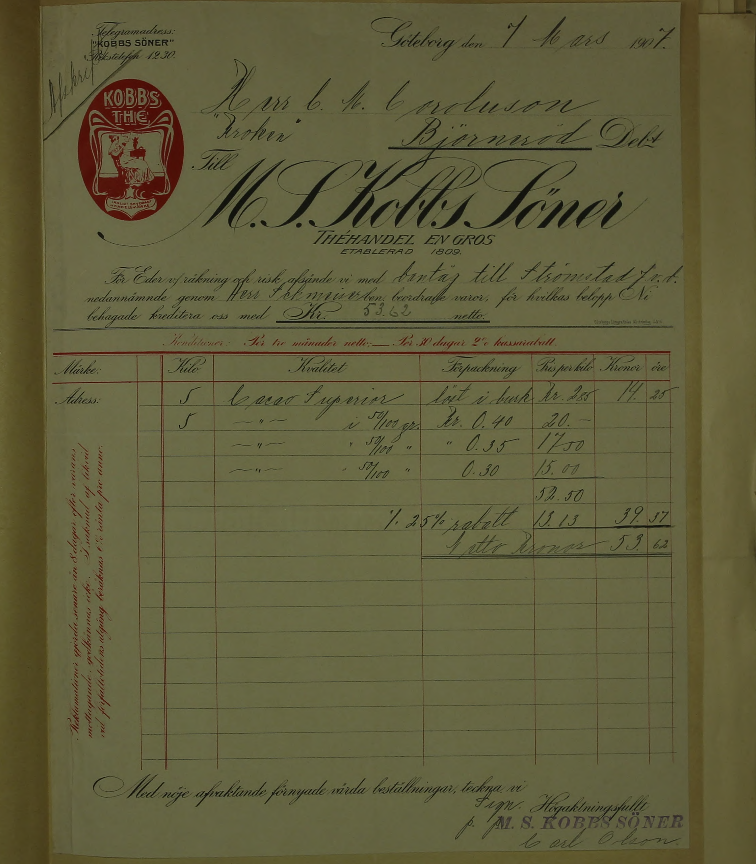 Telegramadress:
"KOBBS SÖNER"
Rikstelefon 1230.
KOBBS
THE
Göteborg den 7 Mars 1907.
Herr C. M. Coroluson
"Kroken"
Björneröd Debt
Till
M. S. Kobbs Söner
THÉHANDEL EN GROS
ETABLERAD 1809.
För Eder v/räkning och risk afsände vi med bantåg till Strömstad f.v.b.
nedannämnde genom Herr ben. beordrade varor, för hvilkas belopp Ni
behagade kreditera oss med Kr. 53.62 netto.
Konditioner: Per tre månader netto; — Per 30 dagar 2% kassarabatt
Märke: Kilo Kvalitet Förpackning Pris per kilo Kronor öre
Adress: 5 Cacao Superior löst i burk Kr. 2 85 14. 25
5 —"— i 50/100 gr. Kr. 0.40 20.—
—"— " 50/100 " " 0.35 17 50
—"— " 50/100 " 0.30 15.00
52.50
% 25% rabatt 13.13 39. 37
Netto Kronor 53. 62
Reklamationer gjorda senare än 8 dagar efter varans
mottagande, godkännas icke.
vid förfallotidens utgång beräknas 6% ränta pro anno.
Med nöje afvaktande förnyade värda beställningar, teckna vi
Högaktningsfullt
M. S. KOBBS SÖNER
Carl Olson.